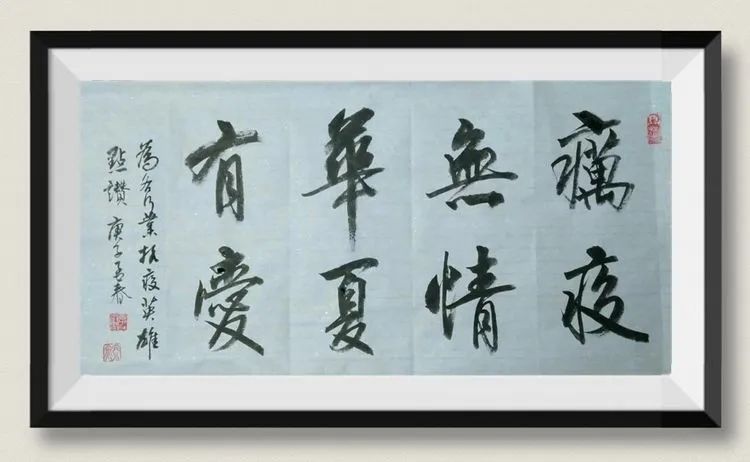 癘疫
無情
華夏
有愛
為各行業抗疫英雄
點讚 庚子孟春